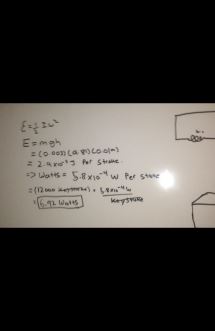 E = ½ Iω²
E = mgh
= (0.003)(9.81)(0.01m)
= 2.9x10⁻⁴ J Per stroke.
=> Watts = 5.8x10⁻⁴ W Per stroke
= (12000 keystroke) • 5.8x10⁻⁴ W / keystroke
= 6.92 Watts